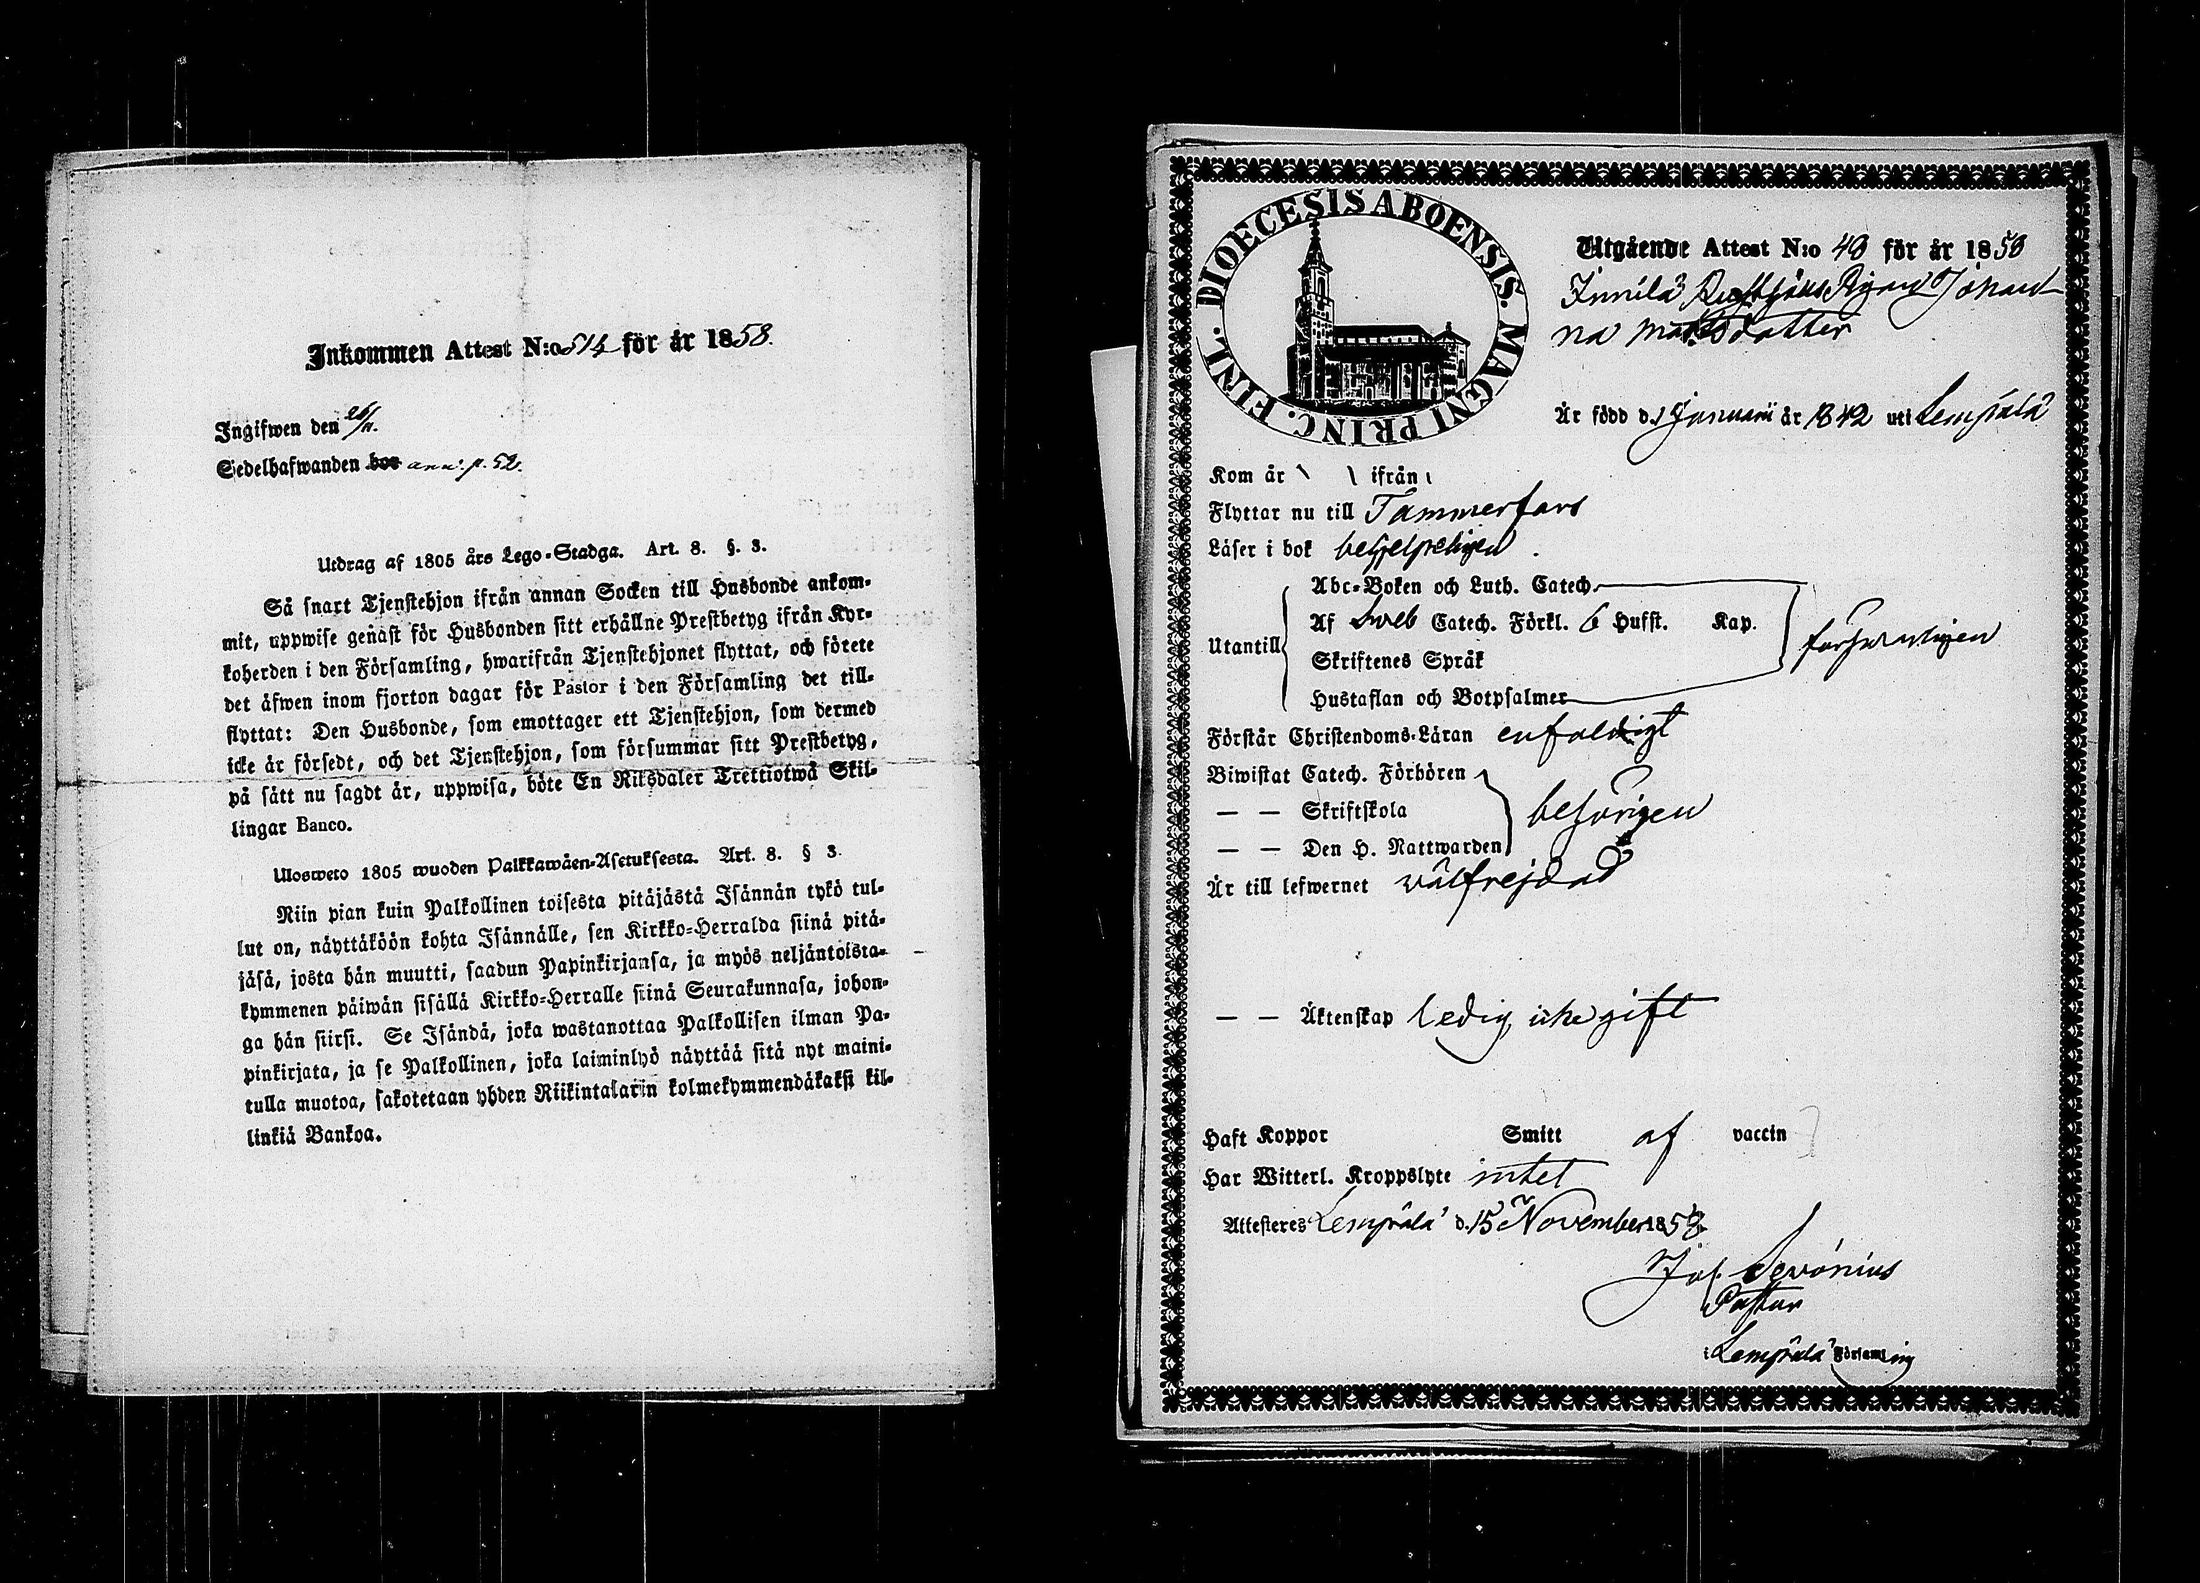 Inkommen Attest N:o 514 för år 1858.
Ingifwen den 26/11.
Sedelhafwanden bor ann. p. 52.
Utdrag af 1805 års Lego-Stadga. Art. 8. §. 3.
Så snart Tjenstehjon ifrån annan Socken till Husbonde ankom-
mit, uppwise genast för Husbonden sitt erhållne Prestbetyg ifrån Kyr-
koherden i den Församling, hwarifrån Tjenstehjonet flyttat, och förete
det äfwen inom fjorton dagar för Pastor i den Församling det till-
flyttat: Den Husbonde, som emottager ett Tjenstehjon, som dermed
icke är försedt, och det Tjenstehjon, som försummar sitt Prestbetyg,
på sätt nu sagdt är, uppwisa, böte En Riksdaler Trettiotwå Skil-
lingar Banco.
Ulosweto 1805 wuoden Palkkawäen-Asetuksesta. Art. 8. § 3.
Niin pian kuin Palkollinen toisesta pitäjästä Isännän tykö tul-
lut on, näyttäköön kohta Isännälle, sen Kirkko-Herralda siinä pitä-
jäsä, josta hän muutti, saadun Papinkirjansa, ja myös neljäntoista-
kymmenen päiwän sisällä Kirkko-Herralle siinä Seurakunnasa, johon-
ga hän siirsi. Se Isändä, joka wastanottaa Palkollisen ilman Pa-
pinkirjata, ja se Palkollinen, joka laiminlyö näyttää sitä nyt maini-
tulla muotoa, sakotetaan yhden Riikintalarin kolmekymmendäkaksi kil-
linkiä Bankoa.
DIOECESIS ABOENSIS. MAGNI PRINC. FINL.
Utgående Attest N:o 40 för år 1858
Innilä Pigan Johan-
na Matsdatter
Är född d. 1 Januarii år 1842 uti Lempälä
Kom år ifrån
Flyttar nu till Tammerfors
Läser i bok behjelpeligen
Abc-Boken och Luth. Catech.
Af Sveb Catech. Förkl. 6 Hufst. Kap.
Utantill försvarligen
Skriftenes Språk
Hustaflan och Botpsalmer
Förstår Christendoms-Läran enfaldigt
Biwistat Catech. Förhören
— — Skriftskola behörigen
— — Den H. Nattwarden
Är till lefwernet välfrejdad
— — Äktenskap ledig icke gift
Haft Koppor Smitt af vaccin
Har Witterl. Kroppslyte intet
Attesteres Lempälä d. 15 November 1858
Jos. Sevónius
Pastor
i Lempälä Församling